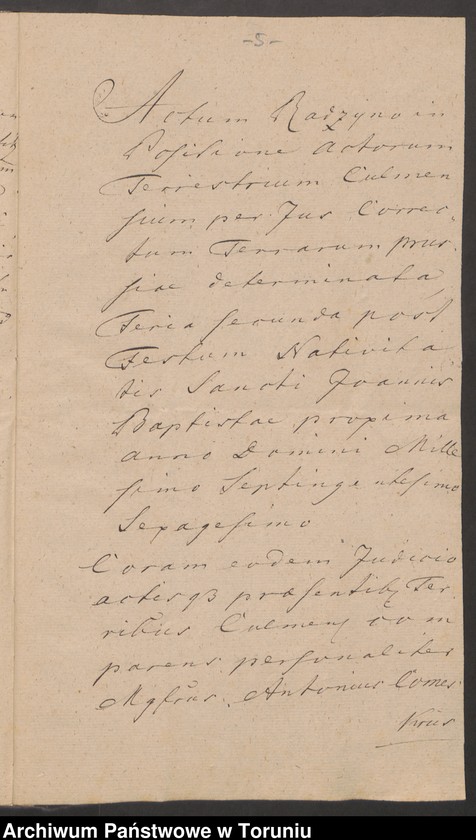 -5-
Actum Radzyno in
Positione Actorum
Terrestrium Culmen
sium per Jus Correc-
tum Terrarum prus-
siae determinata
Feria secunda post
Festum Nativita
tis Sancti Joannis
Baptistae proxima
anno Domini Mille
simo Septingentesimo
Sexagesimo
Coram eodem Judicio
actisq3 praesentib9 Ter-
ribus Culmen com
parens personaliter
Antonius Comes
Archiwum Państwowe w Toruniu